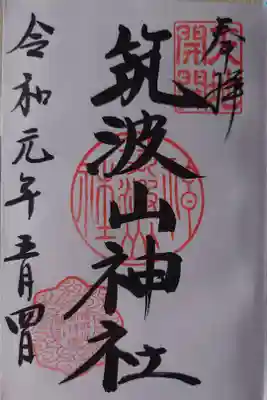 奉拝
筑波山神社
令和元年五月四日